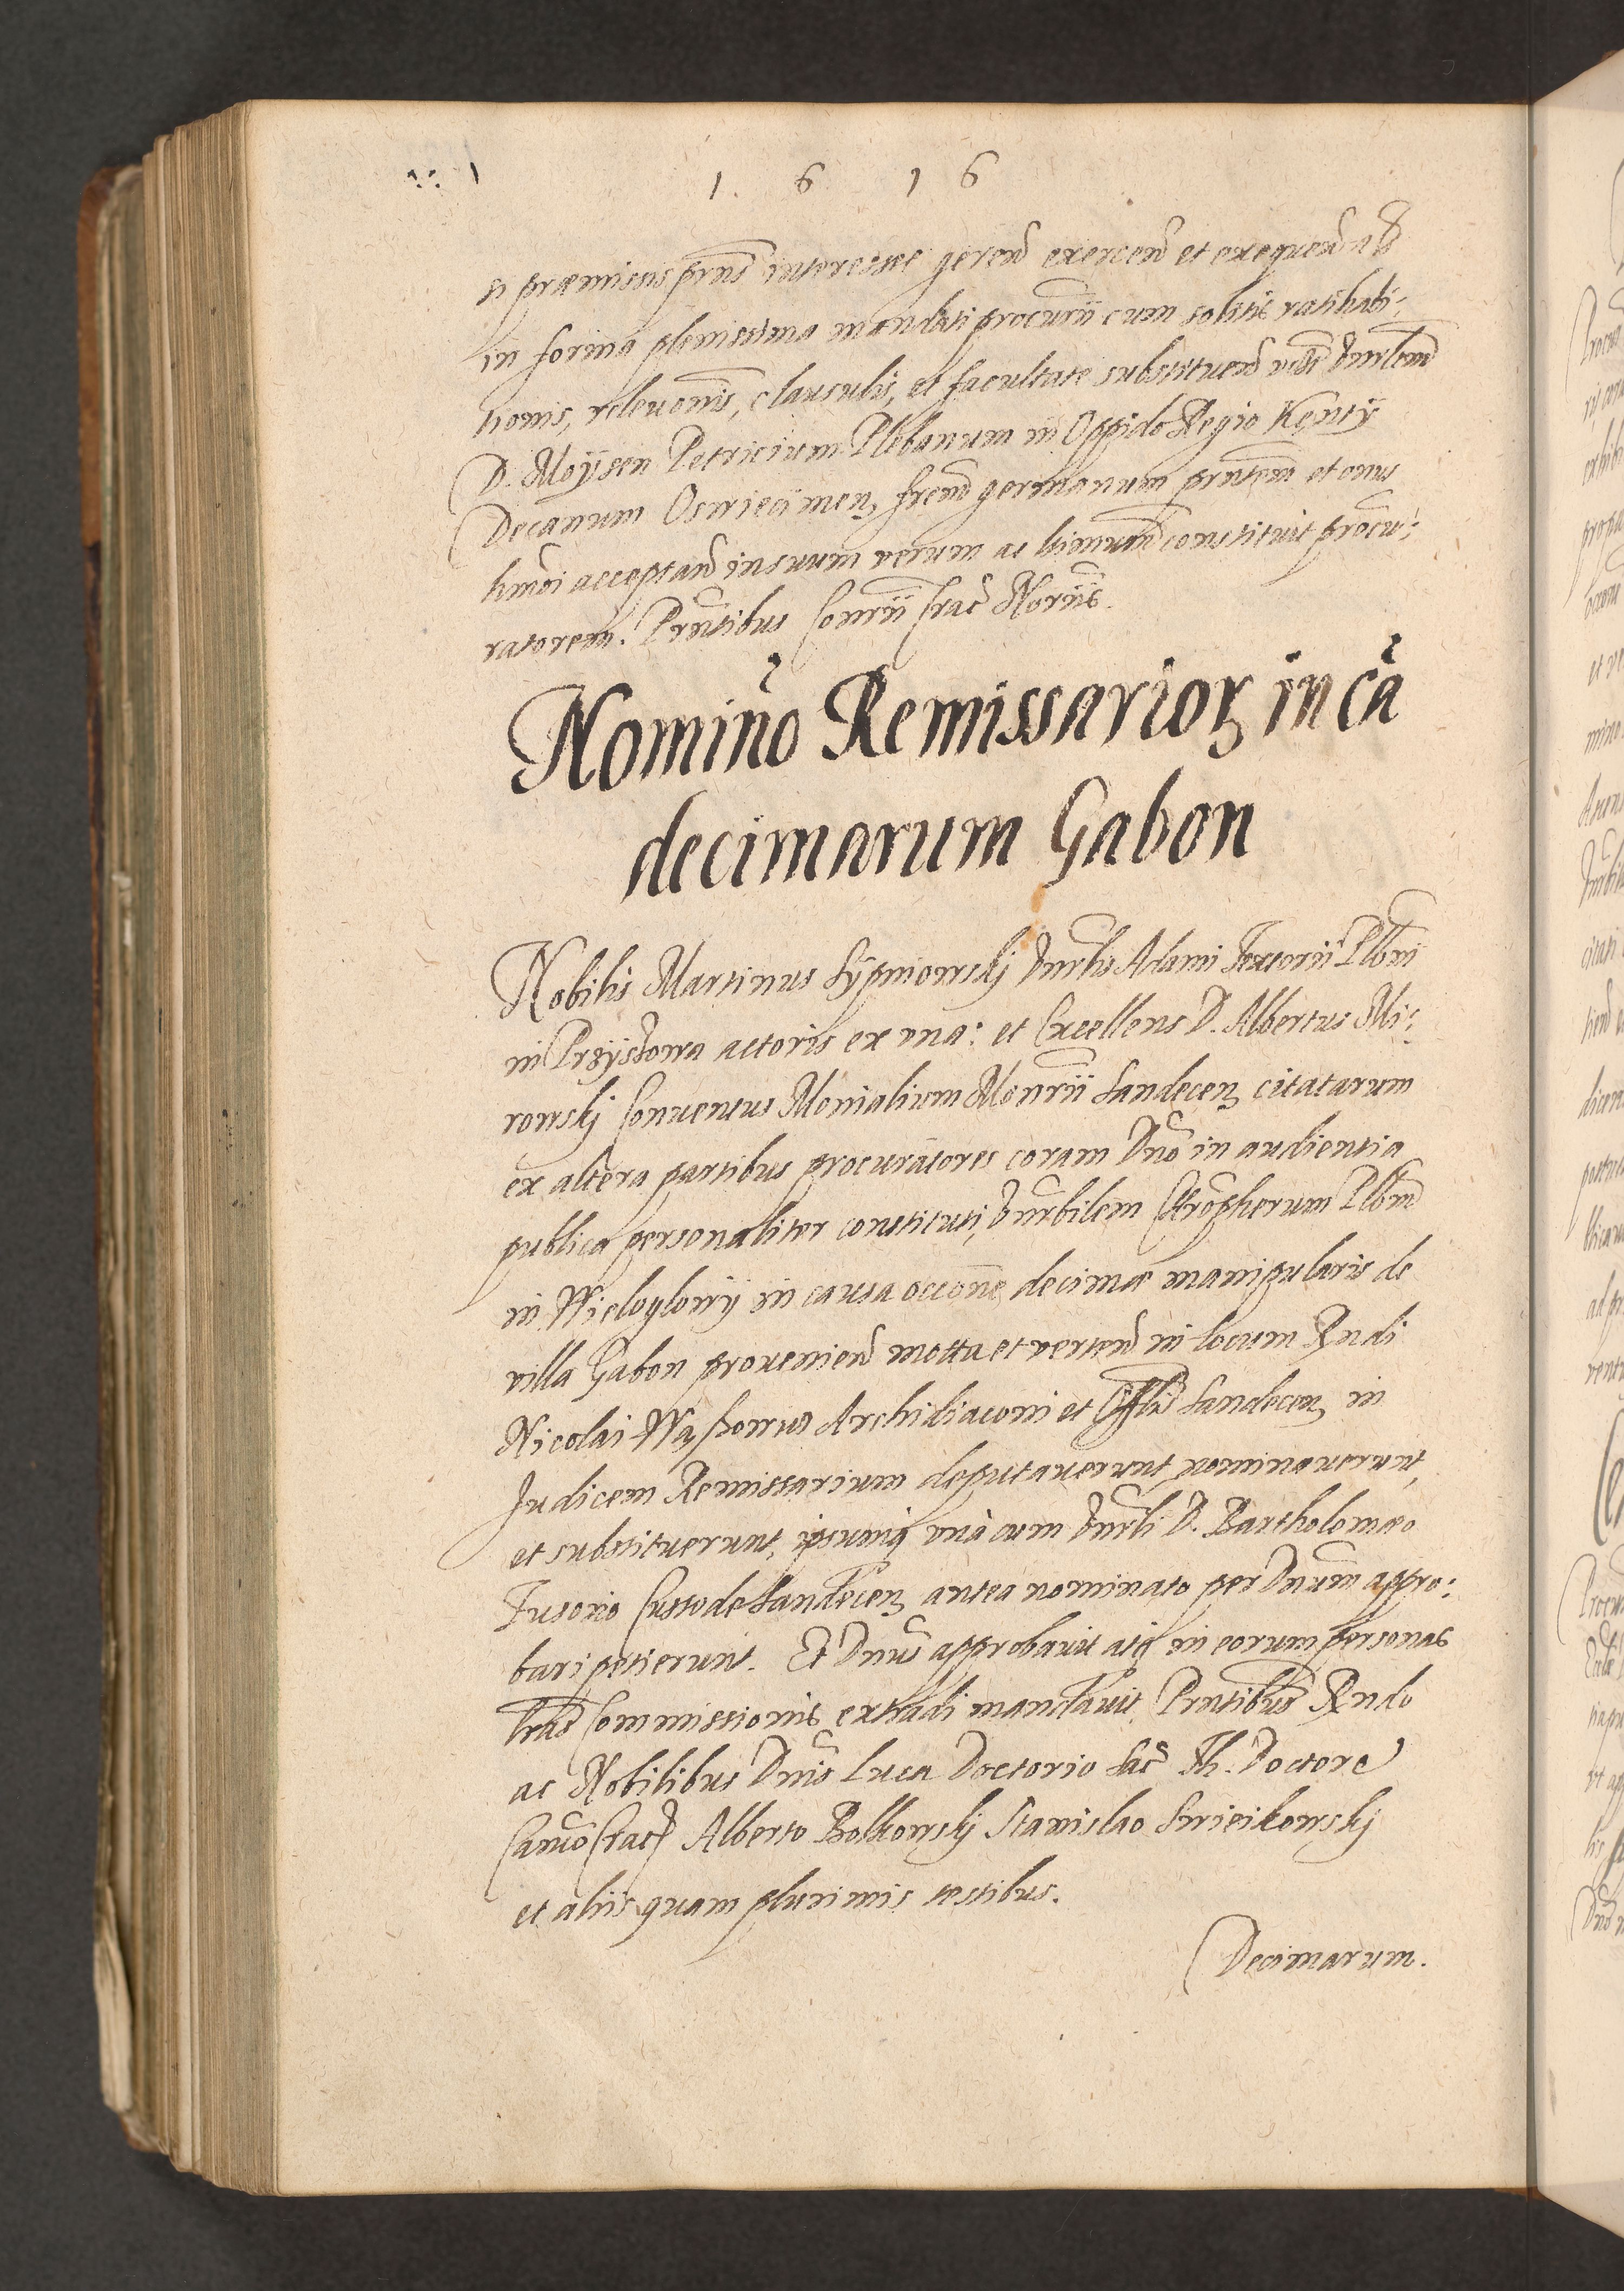 1. 6 1 6
si præmissis pñs interesset gerend exercend et exequend ac
in forma plenissima mandati procurÿ cum solitis ratihabi-
tionis, releuõnis, clausulis, et facultate substituend vñblem
D. Moÿsen Petricium Plebanum in Oppido Regio Kentÿ
Decanum Oswiecimen frem germanum pñtem et onus
hmõi acceptan in suum verum ac ltimum constituit procu-
ratorem. Pñtibus Consrÿ Crac Norÿs.
Nominõ Remissarioꝝ in cã
decimarum Gabon
Nobilis Martinus Sÿpniowskj vñrlis Adami Textorÿ Plbni
in Przÿszowa actoris ex vna: et Excellens D. Albertus Mi:
rowskj Conuentus Monialium Monrÿ Sandecen citatarum
ex altera partibus procuratores coram Dño in audientia
publica personaliter constituti, vñrbilem Chrõpherum Plbnũ
in Wielogłowÿ in causa occõne decimæ manipularis de
villa Gabon proueniend motta et vertend in locum Rndi
Nicolai Archidiaconi et Offlis Sandecen in
Judicem Remissarium deputauerunt, nominauerunt,
et substituerunt, ipsumq vnà cum vñrli D. Bartholomæo
Fusorio Custode Sandecen antea nominato per Dnum appro:
bari petierunt. Et Dnus approbauit atq in eorum personas
lras Commissionis extradi mandauit. Pñtibus Rndo
ac Nobilibus Dnis Luca Doctorio Sac Th. Doctore
Canõ Crac Alberto Bolkowskj Stanislao Swieikowskj
et aliis quam plurimis testibus.
Decimarum.